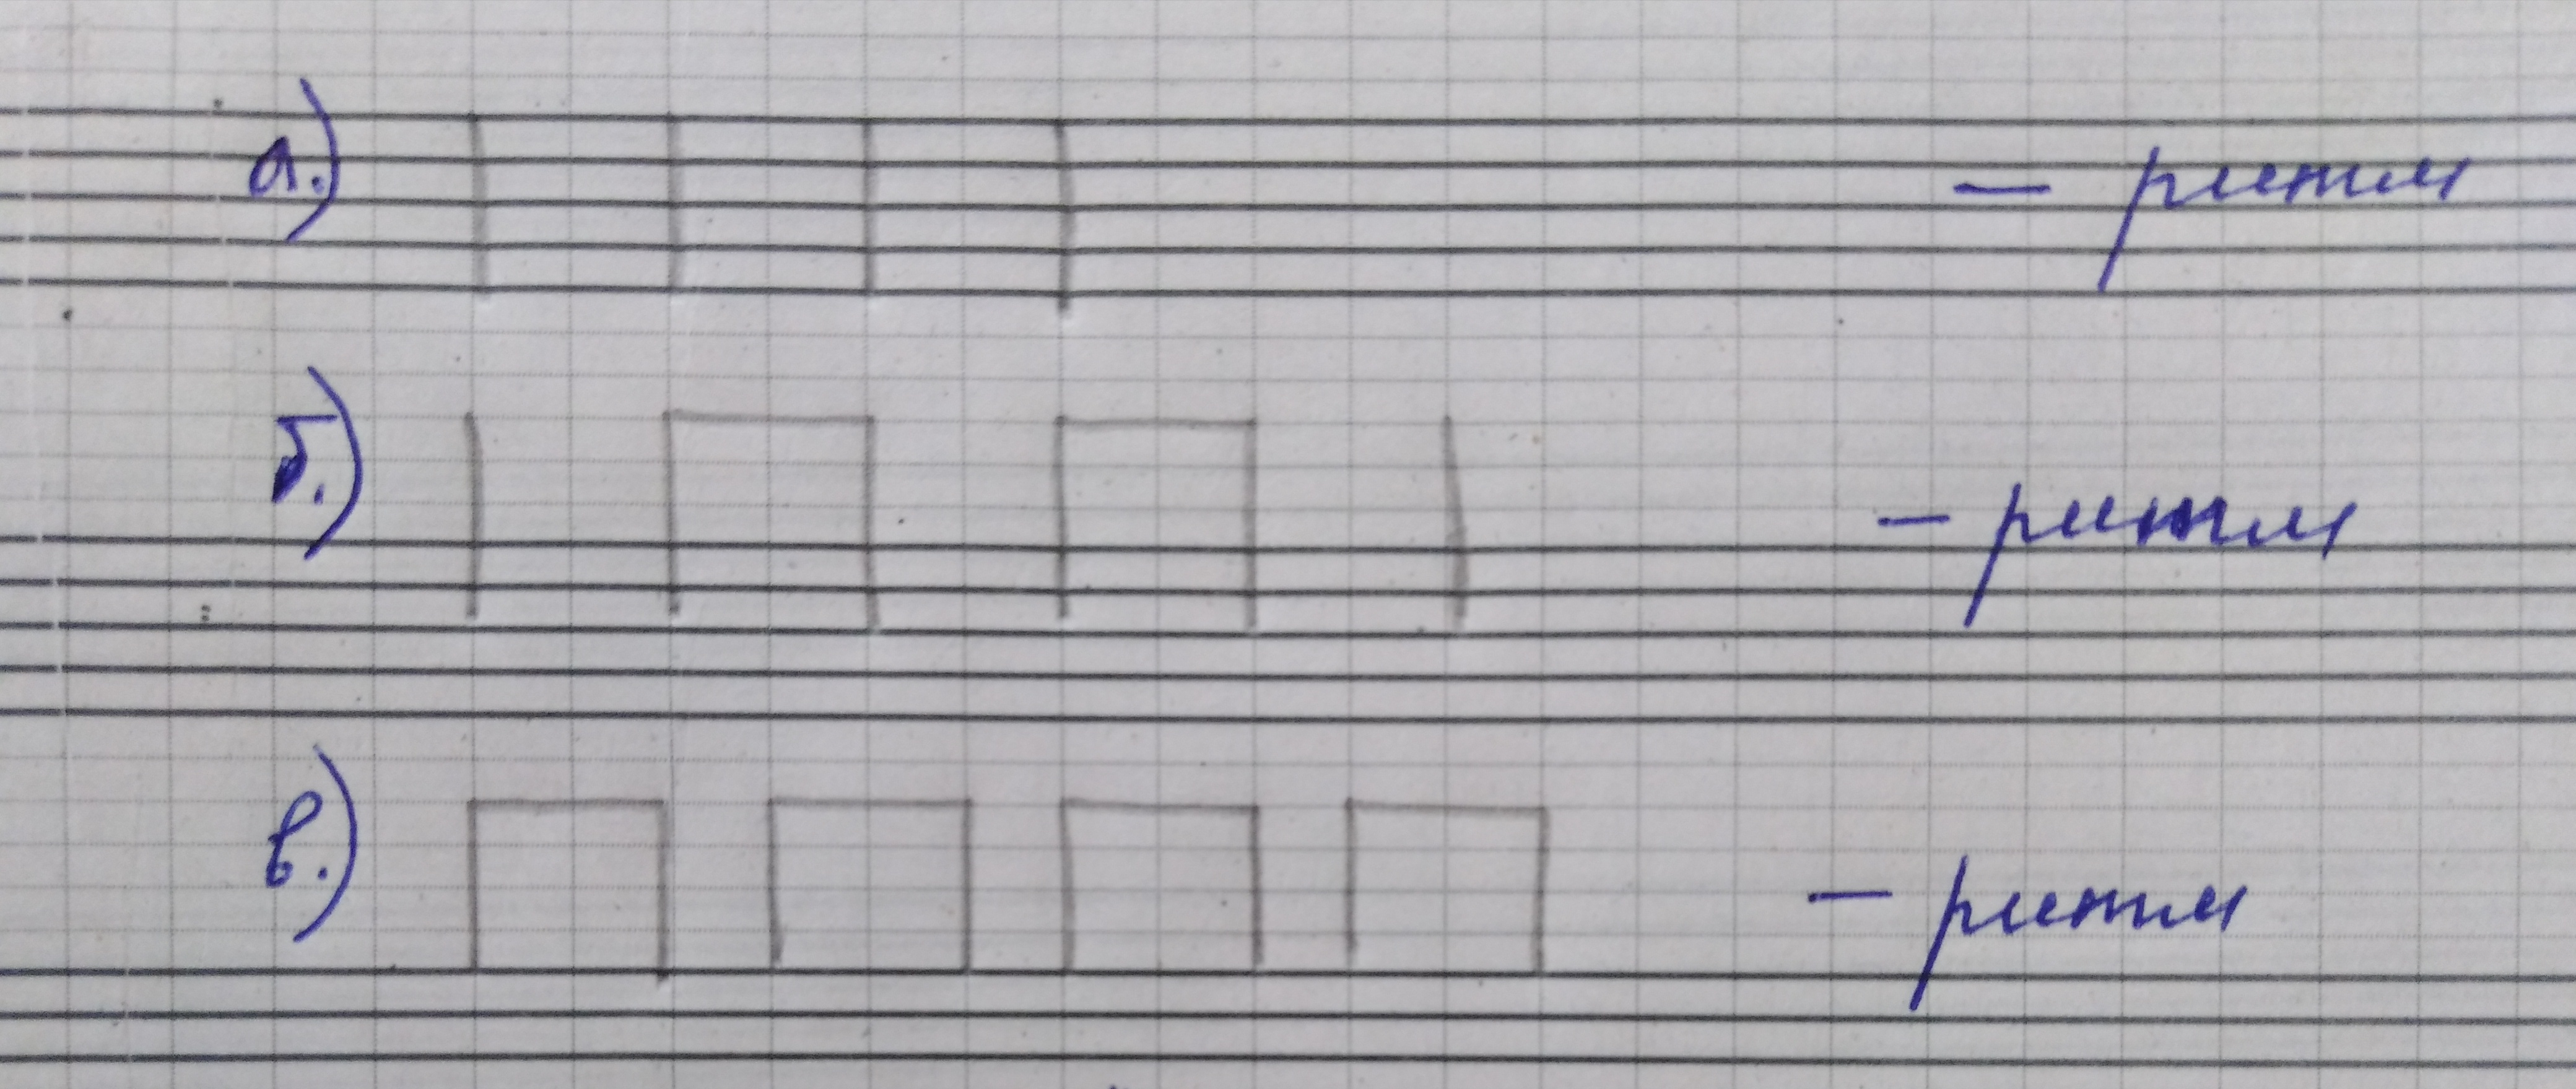 а.) — ритм
б.) — ритм
в.) — ритм